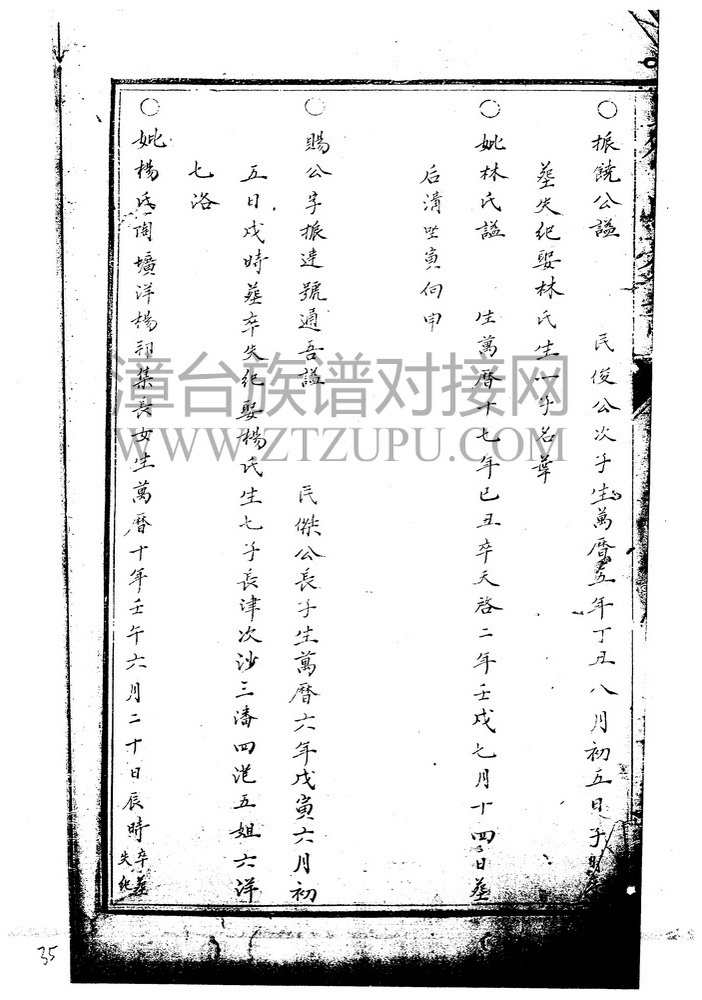 ○振饒公諡 民俊公次子生萬曆五年丁丑八月初五日子時
墓失紀娶林氏生一子名華
○妣林氏諡 生萬曆十七年己丑卒天啓二年壬戌七月十四日墓
后溝坐寅向申
○賜公字振達號通吾諡 民傑公長子生萬曆六年戊寅六月初
五日戌時墓卒失紀娶楊氏生七子長津次沙三潘四港五姐六洋
七洛
○妣楊氏 壙洋楊 集長女生萬曆十年壬午六月二十日辰時卒墓失紀
漳台族谱对接网
WWW.ZTZUPU.COM
35